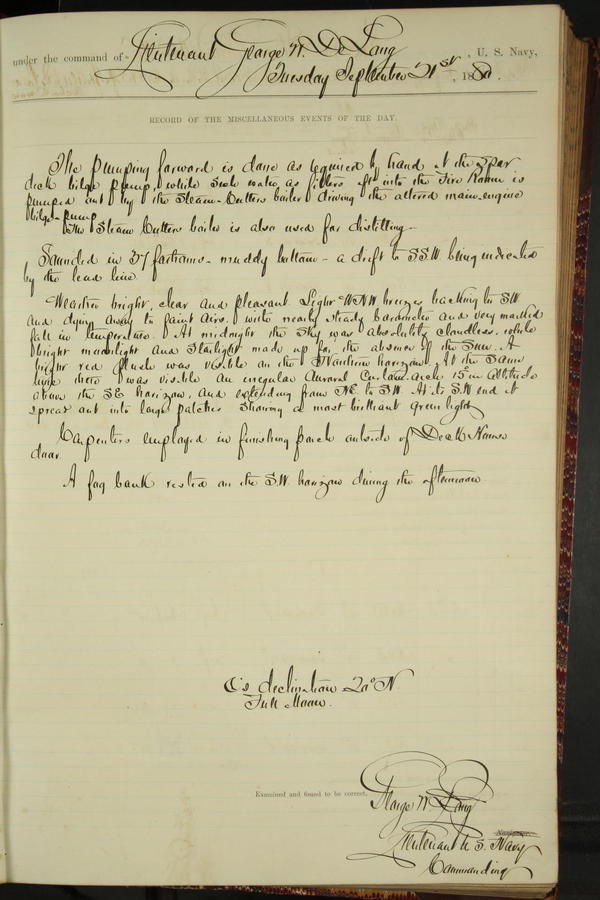 under the command of Lieutenant George W. De Long, U. S. Navy,
Tuesday September 21st, 1880.
RECORD OF THE MISCELLANEOUS EVENTS OF THE DAY.
The pumping forward is done as required by hand at the Spar
deck bilge pump, while such water as filters aft into the Fire Room is
pumped out by the Steam-Cutters boiler driving the altered main-engine
bilge-pump.
The Steam Cutters boiler is also used for distilling.
Sounded in 37 fathoms - muddy bottom - a drift to SSW being indicated
by the lead line.
Weather bright, clear and pleasant. Light WNW breezes backing to SW
and dying away to faint airs, with nearly steady barometer and very marked
fall in temperature. At midnight the sky was absolutely cloudless, while
bright moonlight and Starlight made up for the absence of the Sun. A
bright red flush was visible on the Northern horizon. At the same
time there was visible an irregular Auroral Curtain arch 15° in altitude
above the SE horizon, and extending from NE to SW. At its SW end it
spread out into large patches showing a most brilliant green light.
Carpenters employed in finishing porch outside of Deck House
door.
A fog bank rested on the SW horizon during the afternoon.
☾'s declination 2° N.
Full Moon.
Examined and found to be correct,
George W. De Long
Lieutenant U. S. Navy
Navigator.
Commanding